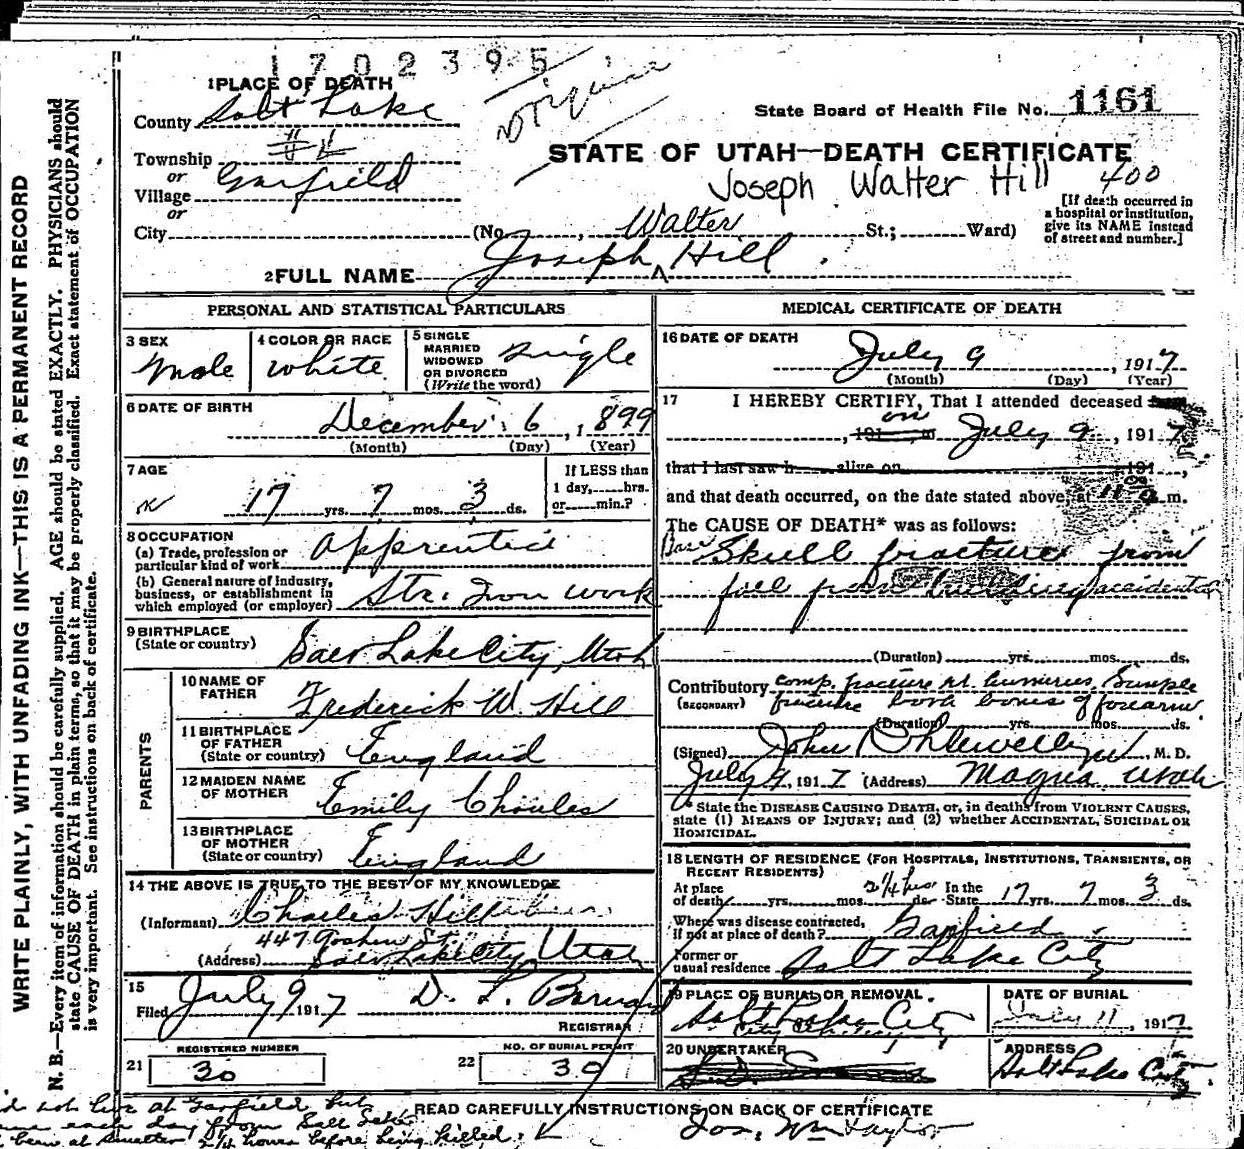 1702395
Original
1 PLACE OF DEATH
State Board of Health File No. 1161
County Salt Lake
STATE OF UTAH—DEATH CERTIFICATE
Township
or
Joseph Walter Hill 400
Village Garfield
or
[If death occurred in
a hospital or institution,
give its NAME instead
of street and number.]
City (No. , St.; Ward)
Walter
2 FULL NAME Joseph ^ Hill
PERSONAL AND STATISTICAL PARTICULARS
3 SEX
Male
4 COLOR OR RACE
White
5 SINGLE
MARRIED
WIDOWED
OR DIVORCED
(Write the word)
Single
6 DATE OF BIRTH
December 6, 1899
(Month) (Day) (Year)
7 AGE
17 yrs. 7 mos. 3 ds.
If LESS than
1 day, hrs.
or min.?
8 OCCUPATION
(a) Trade, profession or
particular kind of work
Apprentice
(b) General nature of industry,
business, or establishment in
which employed (or employer)
Str. Iron work
9 BIRTHPLACE
(State or country)
Salt Lake City, Utah
PARENTS
10 NAME OF
FATHER
Frederick W. Hill
11 BIRTHPLACE
OF FATHER
(State or country)
England
12 MAIDEN NAME
OF MOTHER
Emily Choules
13 BIRTHPLACE
OF MOTHER
(State or country)
England
14 THE ABOVE IS TRUE TO THE BEST OF MY KNOWLEDGE
(Informant) Charles Hill
447 Goshen St.
(Address) Salt Lake City, Utah
15
Filed July 9 1917 D. L.
REGISTRAR
REGISTERED NUMBER
21 30
NO. OF BURIAL PERMIT
22 30
MEDICAL CERTIFICATE OF DEATH
16 DATE OF DEATH
July 9, 1917
(Month) (Day) (Year)
17 I HEREBY CERTIFY, That I attended deceased
on
, 191 , July 9, 1917
that I last saw h alive on 191 ,
and that death occurred, on the date stated above, at 11 m.
The CAUSE OF DEATH* was as follows:
Base Skull fracture from
fall from building accidental
(Duration) yrs. mos. ds.
Contributory comp. fracture rt. humerus, Simple
(SECONDARY) fracture both bones of forearm
(Duration) yrs. mos. ds.
(Signed) John M. D.
July 9, 1917 (Address) Magna Utah
* State the DISEASE CAUSING DEATH, or, in deaths from VIOLENT CAUSES,
state (1) MEANS OF INJURY; and (2) whether ACCIDENTAL, SUICIDAL OR
HOMICIDAL.
18 LENGTH OF RESIDENCE (FOR HOSPITALS, INSTITUTIONS, TRANSIENTS, OR
RECENT RESIDENTS)
At place
of death yrs. mos. 2 1/4 hrs. ds. In the
State 17 yrs. 7 mos. 3 ds.
Where was disease contracted,
if not at place of death? Garfield
Former or
usual residence Salt Lake City
19 PLACE OF BURIAL OR REMOVAL
Salt Lake City
City Cemetery
DATE OF BURIAL
July 11, 1917
20 UNDERTAKER
ADDRESS
Salt Lake City
READ CAREFULLY INSTRUCTIONS ON BACK OF CERTIFICATE
Jos. Wm Taylor
not live at Garfield but
each day from Salt Lake
been at Smelter 2 1/4 hours before being killed.
WRITE PLAINLY, WITH UNFADING INK—THIS IS A PERMANENT RECORD
N. B.—Every item of information should be carefully supplied. AGE should be stated EXACTLY. PHYSICIANS should
state CAUSE OF DEATH in plain terms, so that it may be properly classified. Exact statement of OCCUPATION
is very important. See instructions on back of certificate.